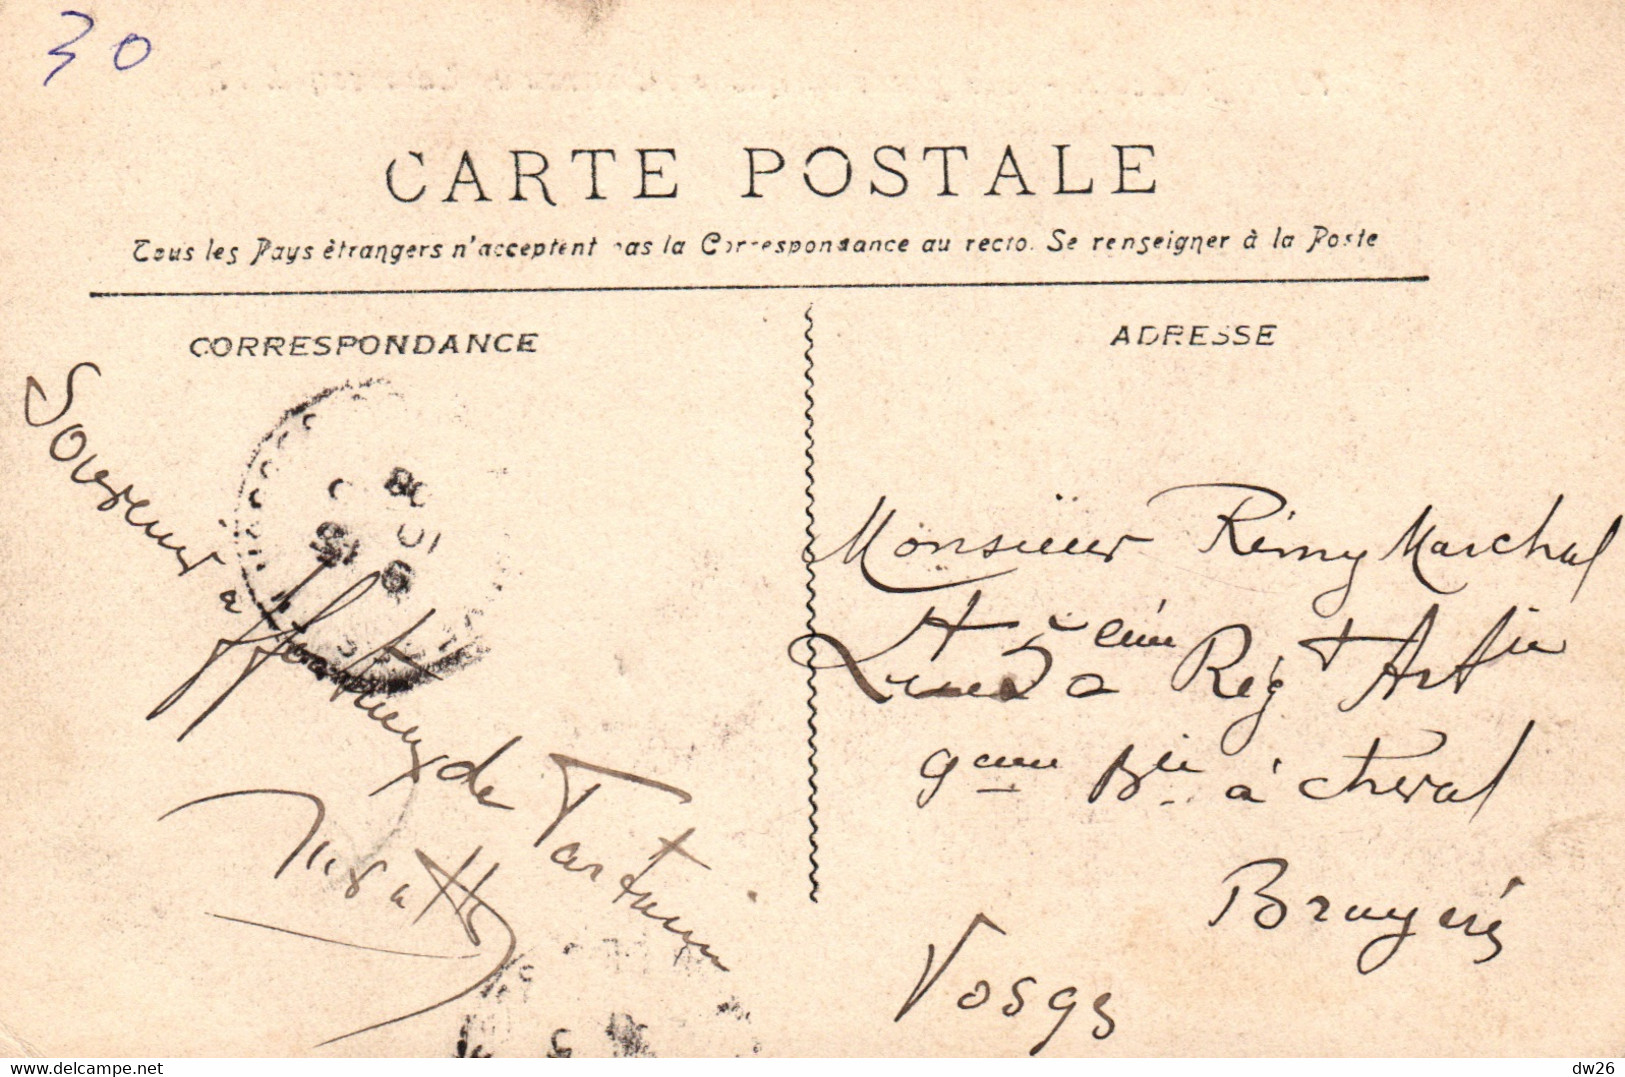 30
CARTE POSTALE
Tous les Pays étrangers n'acceptent pas la Correspondance au recto. Se renseigner à la Poste
CORRESPONDANCE
ADRESSE
Souvenir
affectueux de
Tartarin
Monsieur Rémy Marchal
5 eme Régt Art ie
9 eme Bie à cheval
Bruyères
Vosges
www.delcampe.net
dw26